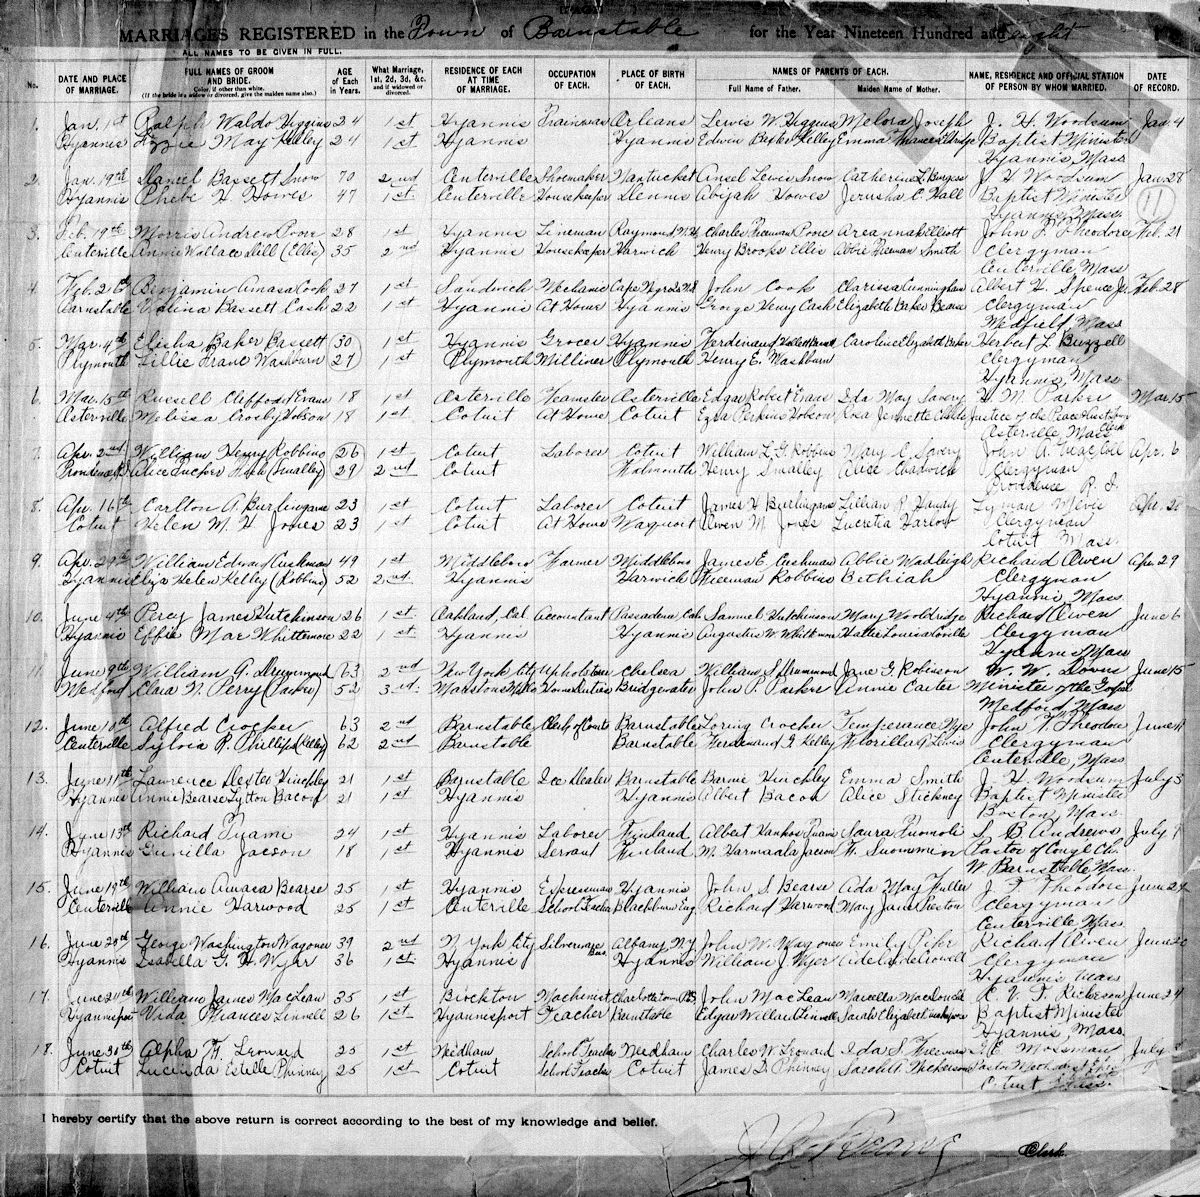 MARRIAGES REGISTERED in the Town of Barnstable for the Year Nineteen Hundred and eight
ALL NAMES TO BE GIVEN IN FULL.
No. DATE AND PLACE OF MARRIAGE. FULL NAMES OF GROOM AND BRIDE. Color, if other than white. (If the bride is a widow or divorced, give the maiden name also.) AGE of Each in Years. What Marriage, 1st, 2d, 3d, &c. and if widowed or divorced. RESIDENCE OF EACH AT TIME OF MARRIAGE. OCCUPATION OF EACH. PLACE OF BIRTH OF EACH. NAMES OF PARENTS OF EACH. Full Name of Father. Maiden Name of Mother. NAME, RESIDENCE AND OFFICIAL STATION OF PERSON BY WHOM MARRIED. DATE OF RECORD.
1. Jan. 1st Ralph Waldo Higgins 24 1st Hyannis Orleans Lewis W. Higgins Melora Joseph J. H. Woodsum Jan. 4
Hyannis Lizzie May Kelley 24 1st Hyannis Hyannis Edwin Baxter Kelley Emma Baptist Minister
Hyannis Mass
2. Jan. 19th Daniel Bassett Snow 70 2nd Centerville Shoemaker Nantucket Ansel Lewis Snow Catherine L. Burgess J H Woodsum Jan. 28
Hyannis Phebe H. Howes 47 1st Centerville Housekeeper Dennis Abijah Howes Jerusha C. Hall Baptist Minister 11
Hyannis Mass.
3. Feb. 19th Morris Andrew Poore 28 1st Hyannis Lineman Raymond N.H. Charles Freeman Poore Areanna Elliott John F. Theodore Feb. 21
Centerville Annie Wallace Hill (Ellis) 35 2nd Hyannis Housekeeper Harwich Henry Brooks Ellis Abbie Freeman Smith Clergyman
Centerville Mass
4. Feb. 26th Benjamin Amasa Cook 27 1st Sandwich Mechanic Cape Negro Is N.S John Cook Clarissa Cunningham Albert H. Spence Jr. Feb. 28
Barnstable Bassett Cash 22 1st Hyannis At Home Hyannis George Henry Cash Elizabeth Baker Bearse Clergyman
Medfield Mass
5. Mar. 4th Elisha Baker Bassett 30 1st Hyannis Grocer Hyannis Ferdinand Caroline Elizabeth Baker Herbert L. Buzzell
Plymouth Lillie Washburn 27 1st Plymouth Milliner Plymouth Henry E. Washburn Clergyman
Hyannis, Mass
6. Mar. 15th Russell Clifford Evans 18 1st Osterville Teamster Osterville Edgar Robert Evans Ida May Savery H. M. Parker Mar. 15
Osterville Melissa Crosby Hobson 18 1st Cotuit At Home Cotuit Ezra Perkins Hobson Rosa Jennette Justice of the Peace
Osterville, Mass Clerk
7. Apr. 2nd William Henry Robbins 26 1st Cotuit Laborer Cotuit William L. G. Robbins Mary C. Savery John A. Apr. 6
Providence R.I Alice (Smalley) 29 2nd Cotuit Falmouth Henry Smalley Alice Chadwick Clergyman
Providence R. I.
8. Apr. 16th Carlton A. Burlingame 23 1st Cotuit Laborer Cotuit James H Burlingame Lillian R. Handy Lyman Mevis Apr. 20
Cotuit Helen M. H. Jones 23 1st Cotuit At Home Waquoit Owen M Jones Lucretia Harlow Clergyman
Cotuit Mass.
9. Apr. 29th William Edward Cushman 49 1st Middleboro Farmer Middleboro James E. Cushman Abbie Wadleigh Richard Owen Apr. 29
Hyannis Eliza Helen Kelley (Robbins) 52 2nd Hyannis Harwich Freeman Robbins Bethiah Clergyman
Hyannis Mass
10. June 4th Percy James Hutchinson 26 1st Oakland, Cal. Accountant Pasadena Cal. Samuel Hutchinson Mary Wooldridge Richard Owen June 6
Hyannis Effie Mae Whittemore 22 1st Hyannis Hyannis Augustus W. Whittemore Hattie Louisa Clergyman
Hyannis Mass
11. June 9th William A. Drummond 63 2nd New York City Upholsterer Chelsea William S. Drummond Jane G. Robinson W. W. Downs June 15
Medford Clara N. Perry (Parker) 52 3rd. Marstons Mills Home Duties Bridgewater John P. Parker Annie Carter Minister of the Gospel
Medford, Mass
12. June 10th Alfred Crocker 63 2nd Barnstable Clerk of Courts Barnstable Loring Crocker Temperance Nye John F. Theodore June 11
Centerville Sylvia P. Phillips (Kelley) 62 2nd Barnstable Barnstable Ferdinand G. Kelley Florilla A. Lewis Clergyman
Centerville, Mass
13. June 11th Lawrence Dexter Hinckley 21 1st Barnstable Ice Dealer Barnstable Barnie Hinckley Emma Smith J. H. Woodsum July 3
Hyannis Annie Bearse Lytton Bacon 21 1st Hyannis Hyannis Albert Bacon Alice Stickney Baptist Minister
Boston, Mass.
14. June 13th Richard 24 1st Hyannis Laborer Finland Albert S. B. Andrews July 9
Hyannis Gunilla Jacson 18 1st Hyannis Servant Finland M. Harmaala Jacson H. Suominen Pastor of Congl Ch.
W Barnstable Mass.
15. June 19th William Amasa Bearse 25 1st Hyannis Expressman Hyannis John S Bearse Ada May Fuller J. F. Theodore June 24
Centerville Annie Harwood 25 1st Centerville School Teacher Blackburn Eng Richard Harwood Mary Jane Preston Clergyman
Centerville Mass
16. June 20th George Washington Wagoner 39 2nd N. York City Silverware Bus. Albany N.Y. John W. Wagoner Emily Richard Owen June 20
Hyannis Isabella G. H. Wyer 36 1st Hyannis Hyannis William J. Wyer Adela Clergyman
Hyannis Mass
17. June 24th William James MacLean 35 1st Brockton Machinist Charlottetown P.E.I. John MacLean Marcella MacDonald R. V. T. Rickerson June 24
Hyannisport Vida Frances Linnell 26 1st Hyannisport Teacher Barnstable Edgar Willard Linnell Sarah Elizabeth Baptist Minister
Hyannis, Mass.
18. June 30th Alpha H. Leonard 25 1st Needham School Teacher Needham Charles W. Leonard Ida S. Freeman G. E. Mossman July
Cotuit Lucinda Estelle Phinney 25 1st Cotuit School Teacher Cotuit James D. Phinney Sarah H. Nickerson Pastor Methodist
Cotuit, Mass.
I hereby certify that the above return is correct according to the best of my knowledge and belief.
Clerk.